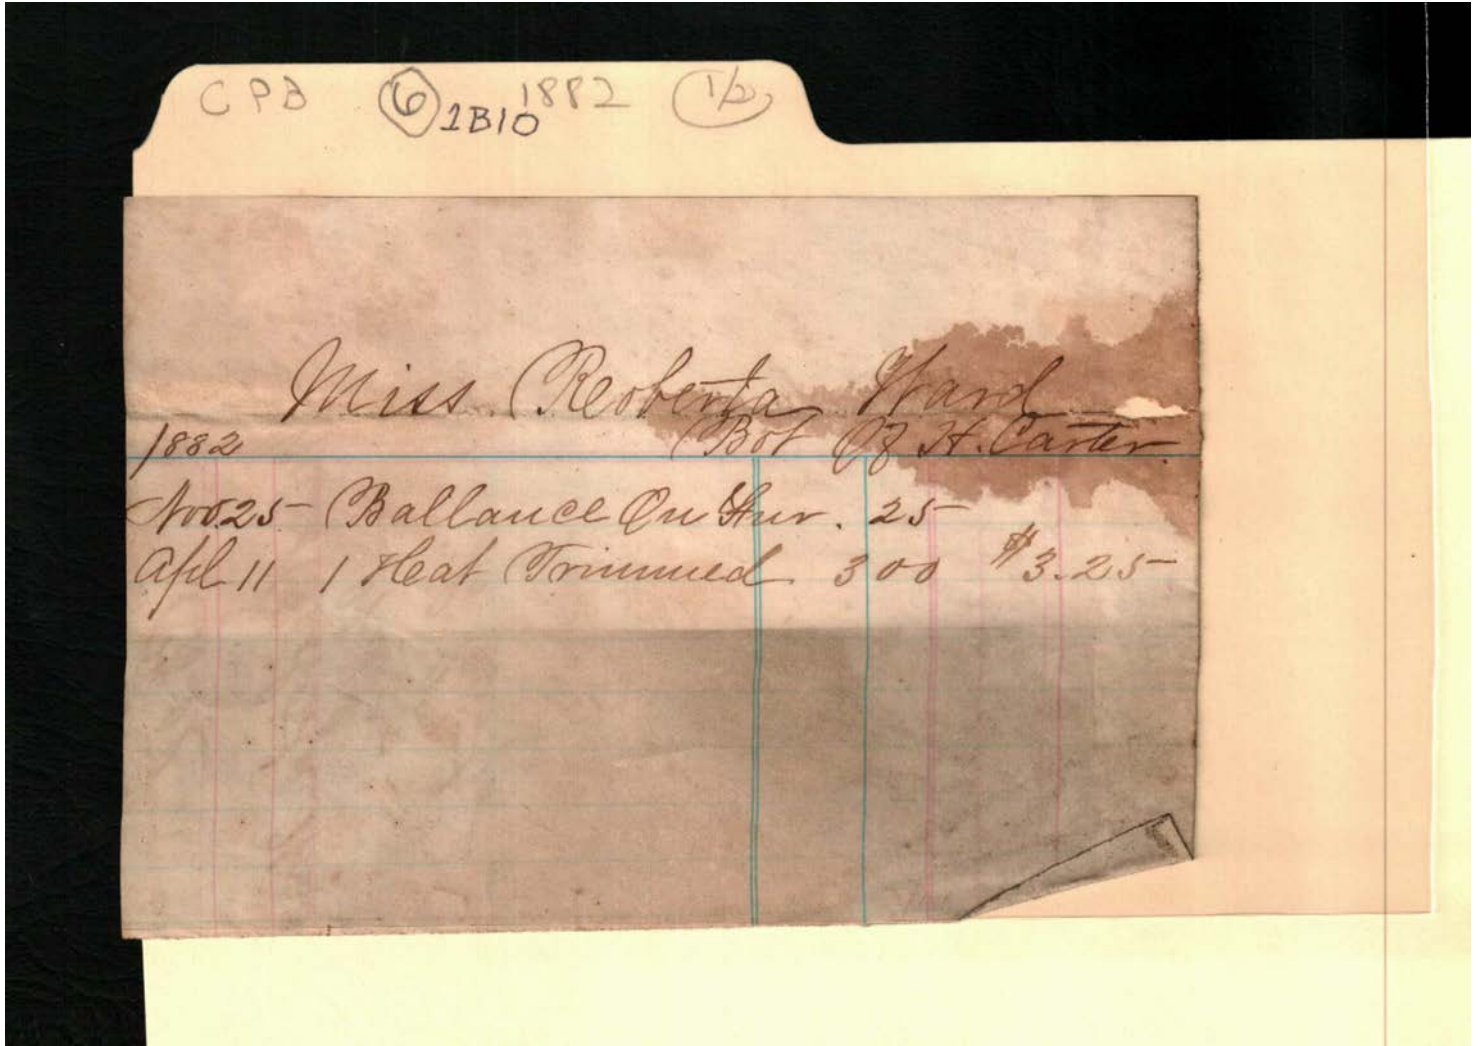 CPD 6 1B10 1882 1/2
Miss. Roberta Ward
1882 Bot Of H. Carter.
Nov 25 Ballance On Fur. 25
Apl 11 1 Heat Trimmed 3 00 $3.25